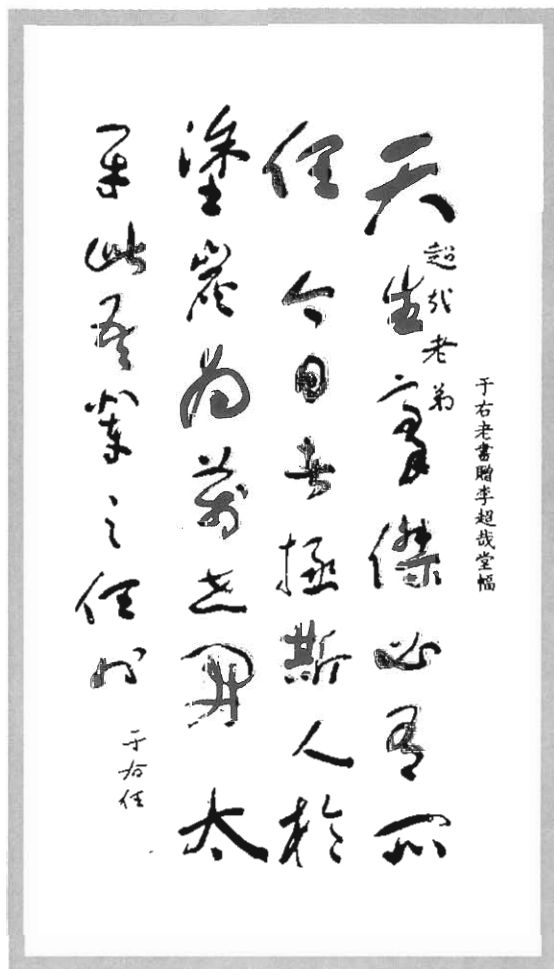 于右老書贈李超哉堂幅
超哉老弟
天生豪傑必有所
任今日者拯斯人於
塗炭為萬世開太
平此吾輩之任也
于右任